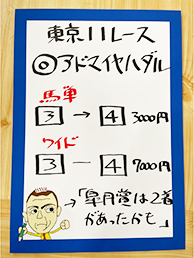 東京11レース
◎アドマイヤハダル
馬単
3→4 3000円
ワイド
3－4 7000円
→「皐月賞は2着
があったかも」